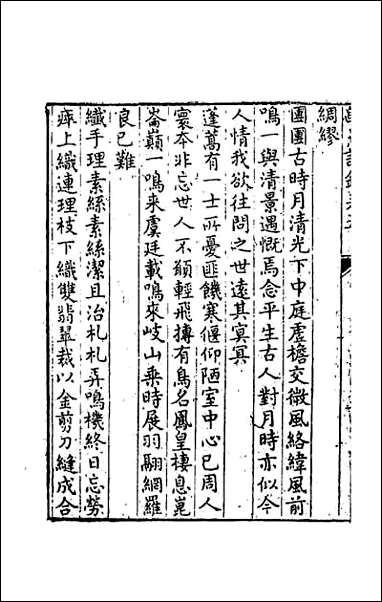 綢繆
團團古時月清光下中庭虛檐交微風絡緯風前
鳴一與清景遇慨焉念平生古人對月時亦似今
人情我欲往問之世遠其寞冥
蓬蒿有一士所憂匪饑寒偃仰陋室中心已周人
寰夲非忘世人不願輕飛摶有鳥名鳳皇棲息崑
崙巔一鳴來虞廷載鳴來岐山乘時展羽翮網羅
良已難
纖手理素絲素絲潔且治札札弄鳴機終日忘勞
疲上織連理枝下織雙翡翠裁以金剪刀縫成合